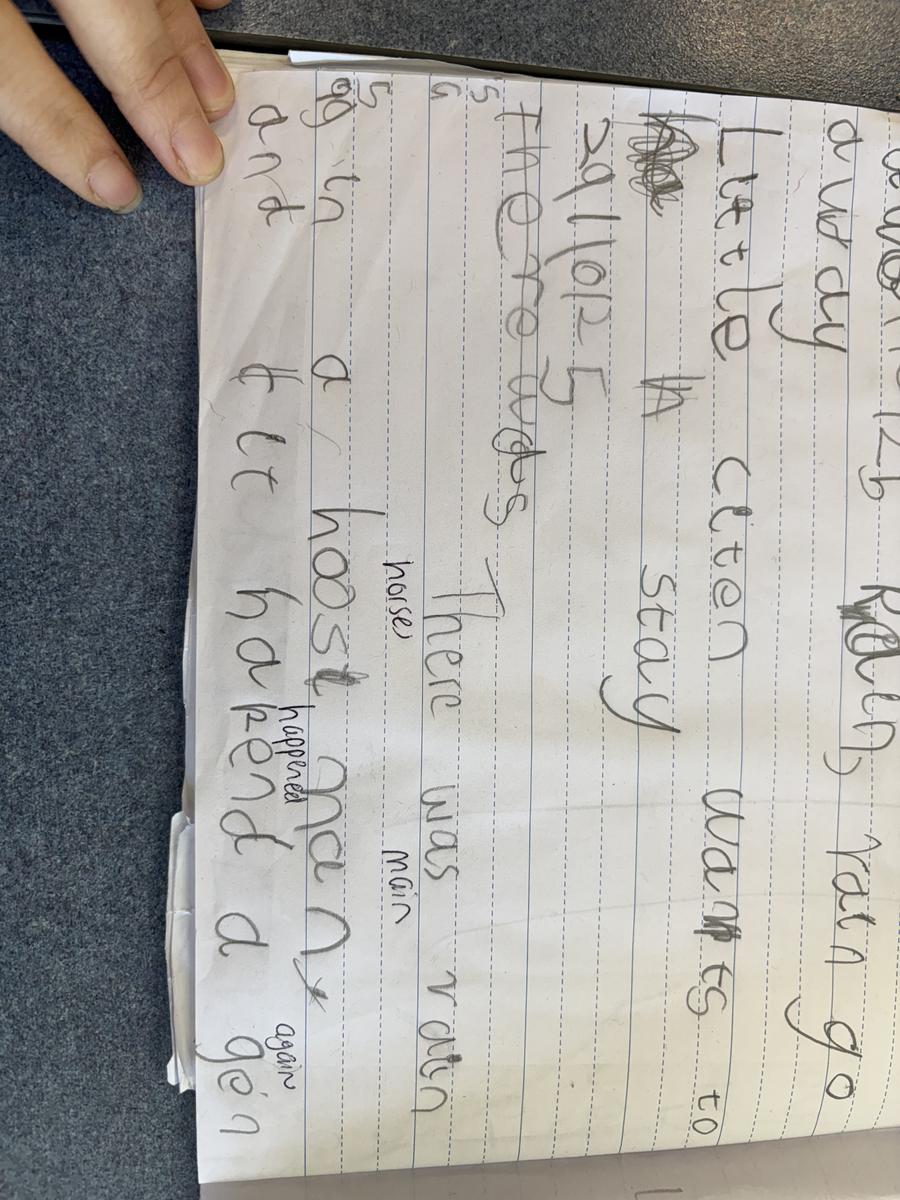 Rain, rain go
away
Little citen wants to
stay
There was
There was rain
horse main
in a hoost man
happened again
and it hapend a gen